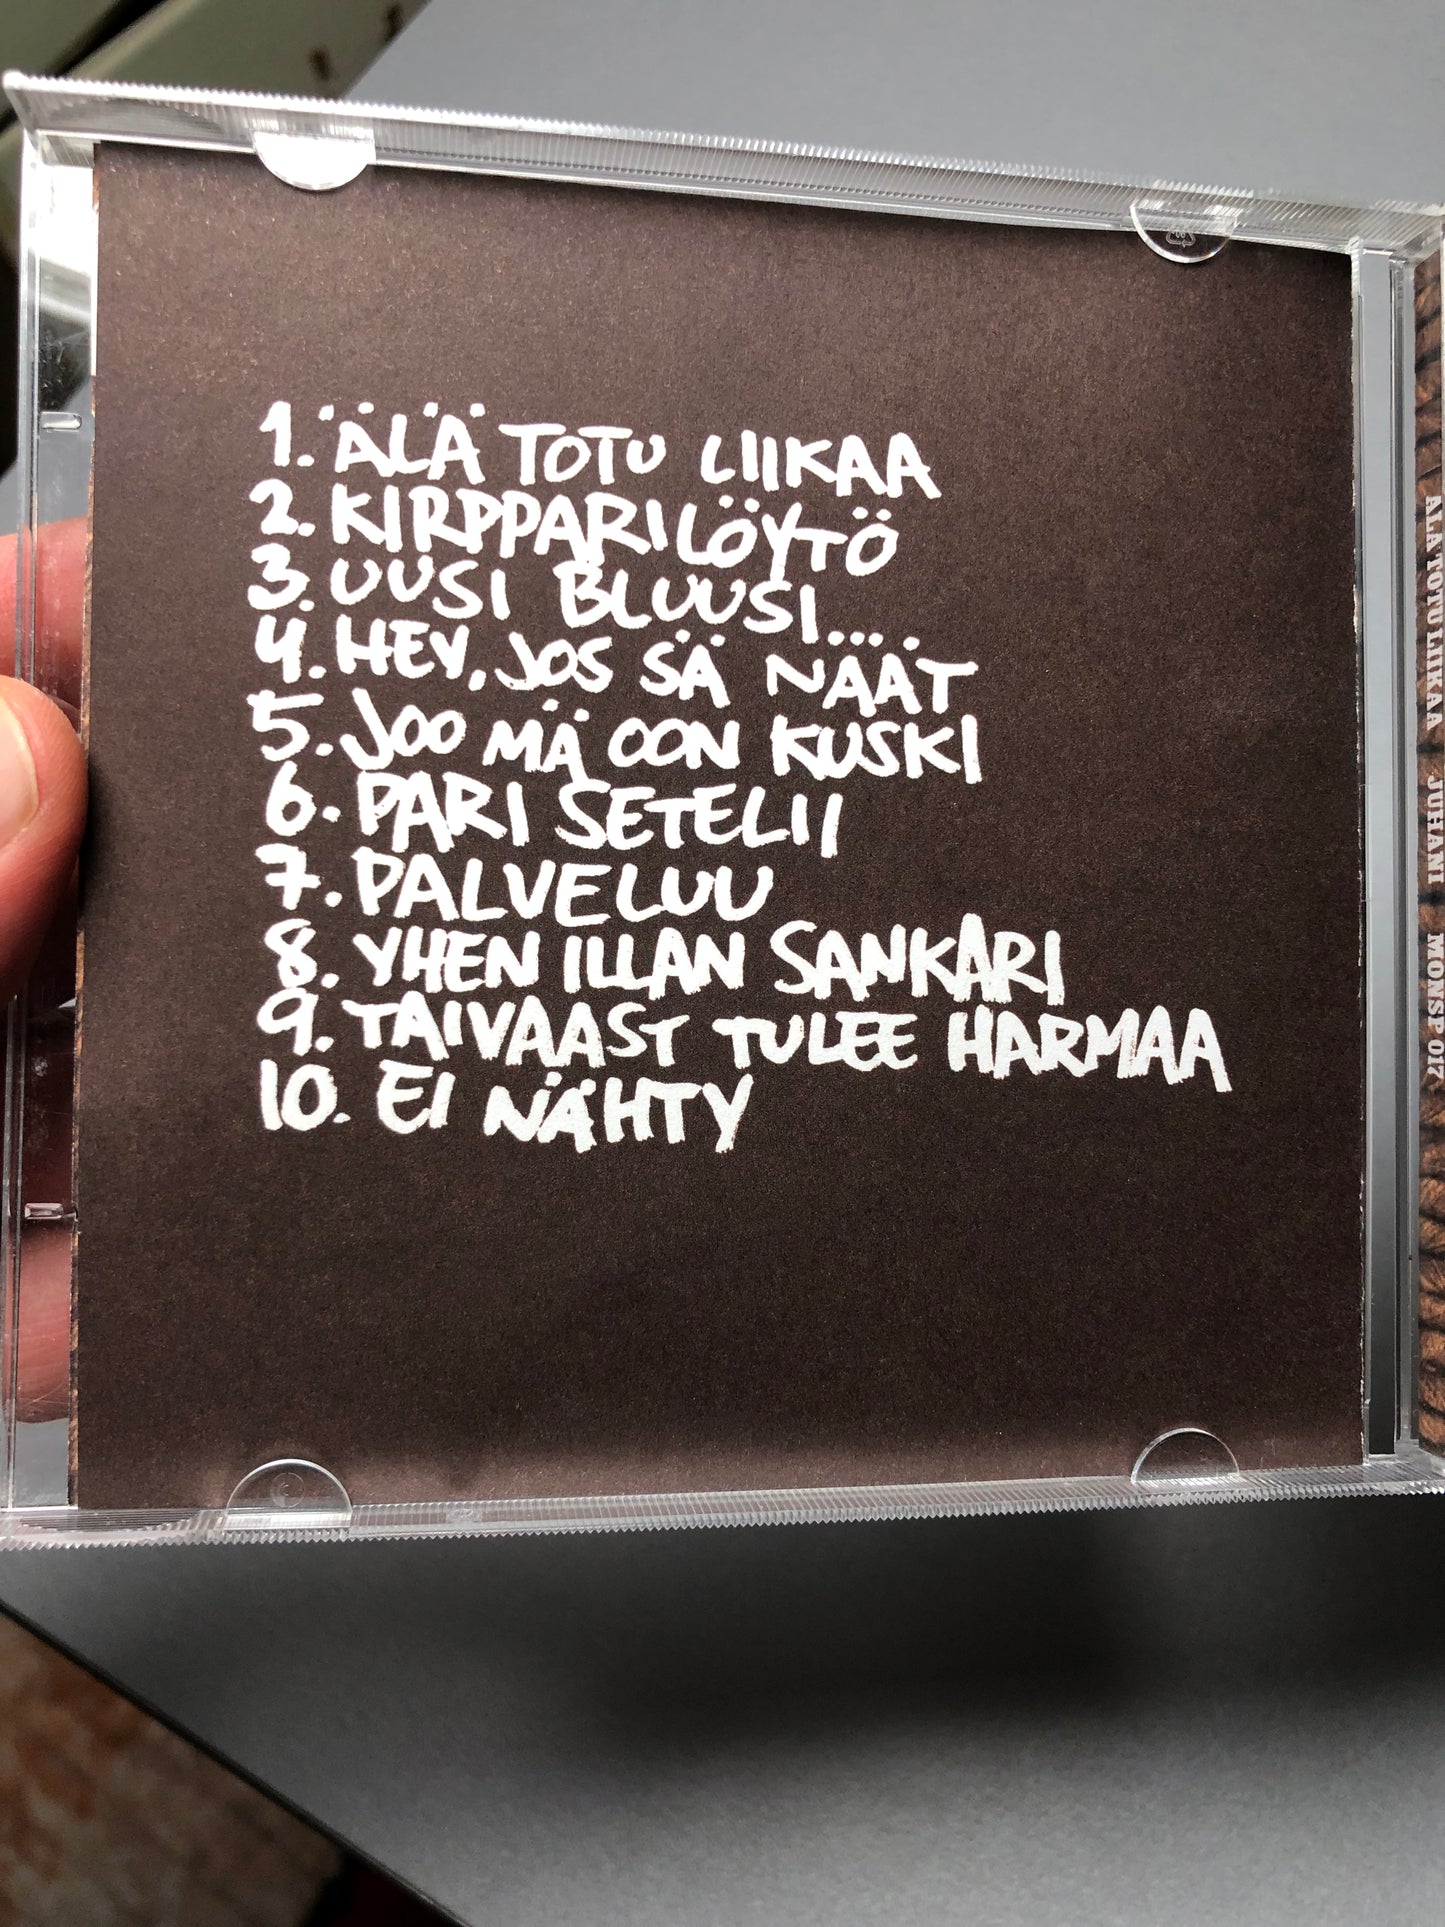 1. ÄLÄ TOTU LIIKAA
2. KIRPPARILÖYTÖ
3. UUSI BLUUSI...
4. HEY, JOS SÄ NÄÄT
5. JOO MÄ OON KUSKI
6. PARI SETELII
7. PALVELUU
8. YHEN ILLAN SANKARI
9. TAIVAAST TULEE HARMAA
10. EI NÄHTY
ÄLÄ TOTU LIIKAA JUHANI MONSP 017